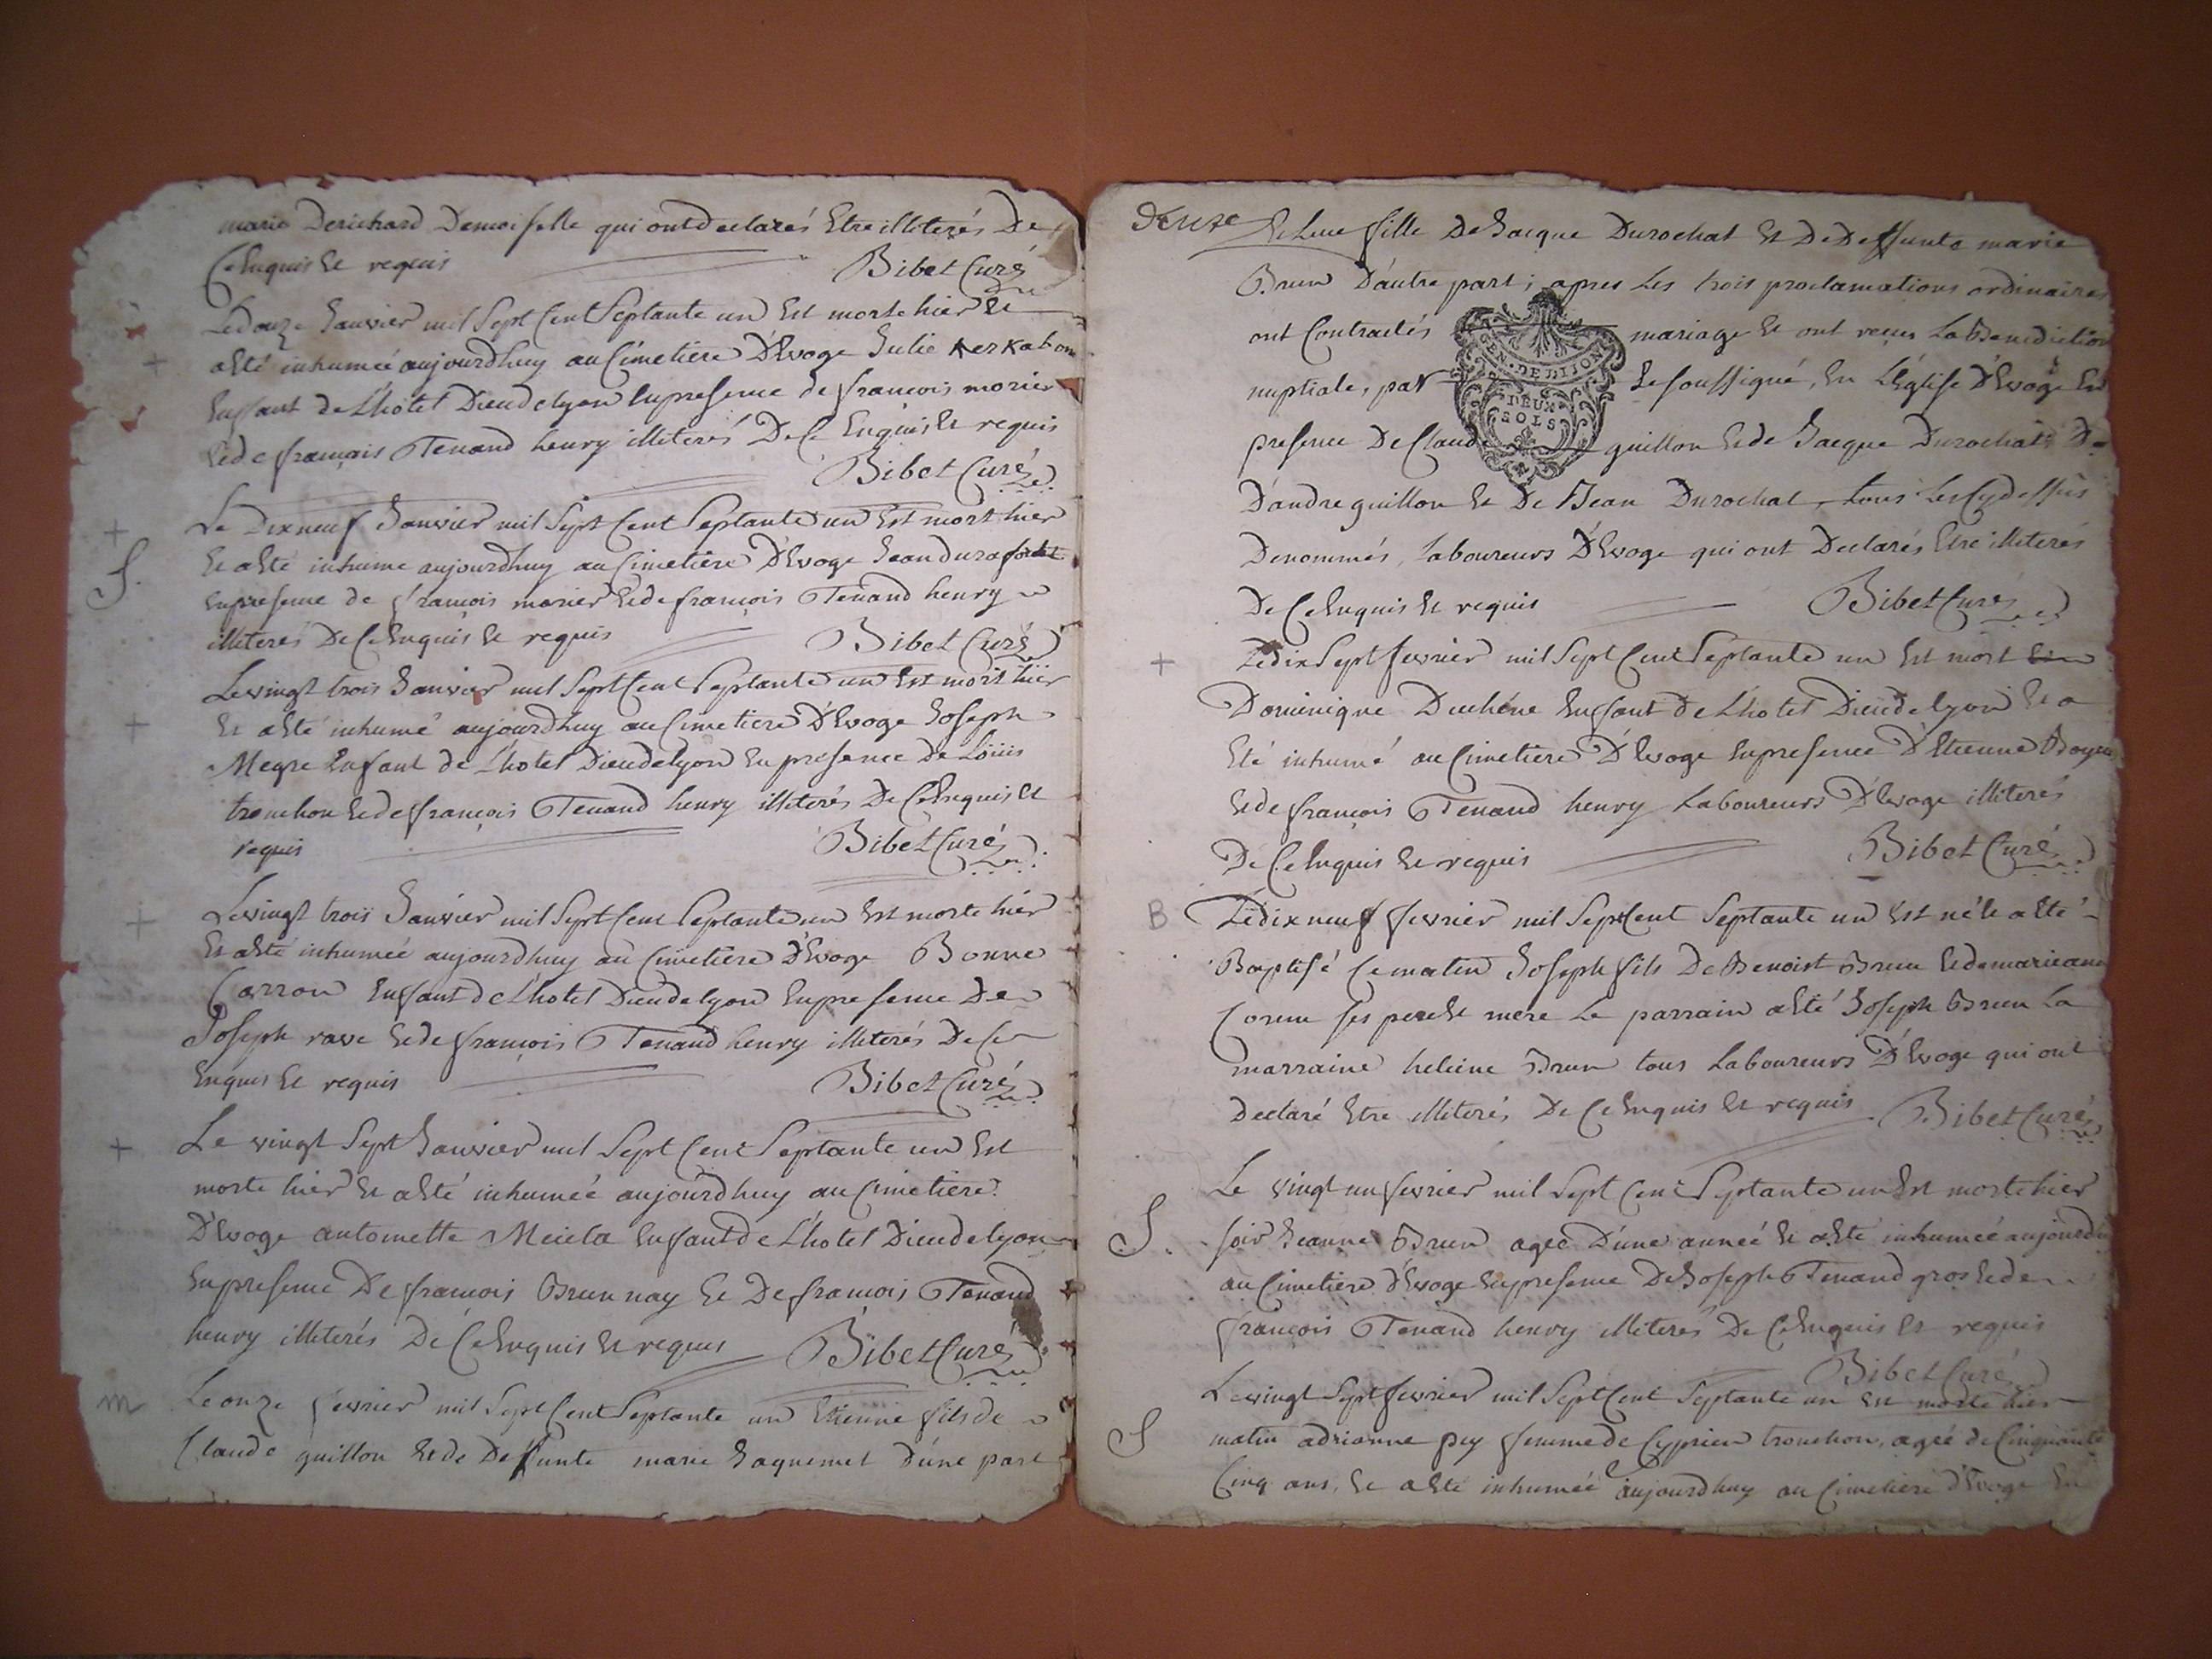 marie Derichard Demoiselle qui ont declarés Etre illiterés De
Ce Enquis Et requis
Bibet Curé
Le douze Janvier mil Sept Cent Septante un Est morte hier Et
a Eté inhumée aujourdhuy au Cimetiere D'Evoge Julie Kerkabon
Enfant de L'hotel Dieu de lyon En presence de francois morier
Et de francais Tenand henry illiterés De Ce Enquis Et requis
Bibet Curé
+
Le Dixneuf Janvier mil Sept Cent Septante un Est mort hier
S.
Et a Eté inhume aujourdhuy au Cimetiere D'Evoge Jean
En presence de francois morier Et de francois Tenand henry
illiterés De Ce Enquis Et requis
Bibet Curé
Le vingt trois Janvier mil Sept Cent Septante un Est mort hier
+
Et a Eté inhumé aujourdhuy au Cimetiere D'Evoge Joseph
Megre Enfant de L'hotel Dieu de lyon En presence De Loüis
tronchon Et de francois Tenand henry illiterés De Ce Enquis Et
requis
Bibet Curé
+
Le vingt trois Janvier mil Sept Cent Septante un Est morte hier
Et a Eté inhumée aujourdhuy au Cimetiere D'Evoge Bonne
Carron Enfant de L'hotel Dieu de lyon En presence De
Joseph rave Et de francois Tenand henry illiterés De Ce
Enquis Et requis
Bibet Curé
+
Le vingt Sept Janvier mil Sept Cent Septante un Est
morte hier Et a Eté inhumée aujourdhuy au Cimetiere
D'Evoge antoinette Enfant de L'hotel Dieu de lyon
En presence De francois Brun nay Et De francois Tenand
henry illiterés De Ce Enquis Et requis
Bibet Curé
m
Le onze fevrier mil Sept Cent Septante un Etienne fils de
Claude guillon Et de Deffunte marie Jaquemet D'une part
Deuze
Et fille De Jacque Durochat Et De Deffunte marie
Brun D'autre part; apres Les trois proclamations ordinaires
ont Contractés mariage Et ont recus La Benediction
GEN. DE DIJON
DEUX
SOLS
nuptiale, par Le soussigné, En L'Eglise D'Evoge En
presence De Claude guillon Et de Jacque Durochat
D'andre guillon Et De Jean Durochat, tous Les Cy dessus
Denommés, Laboureurs D'Evoge qui ont Declarés Etre illiterés
De Ce Enquis Et requis
Bibet Curé
+
Le dix Sept fevrier mil Sept Cent Septante un Est mort
Dominique Duchéne Enfant de L'hotel Dieu de lyon Et a
Eté inhumé au Cimetiere D'Evoge En presence D'Etienne
Et de francois Tenand henry Laboureurs D'Evoge illiterés
De Ce Enquis Et requis
Bibet Curé
B
Le dix neuf fevrier mil Sept Cent Septante un Est né Et a Eté
Baptisé Ce matin Joseph fils De Benoist Brun Et de marie anne
ses pere Et mere Le parrain a Eté Joseph Brun La
marraine heleine Brun tous Laboureurs D'Evoge qui ont
Declaré Etre illiterés De Ce Enquis Et requis
Bibet Curé
Le vingt un fevrier mil Sept Cent Septante un Est morte hier
S.
soir Jeanne Brun ageé D'une année Et a Eté inhumée
au Cimetiere D'Evoge En presence De Joseph Tenand gros Et de
francois Tenand henry illiterés De Ce Enquis Et requis
Bibet Curé
Le vingt Sept fevrier mil Sept Cent Septante un Est morte hier
S
matin adrianne pey femme de Cyprien tronchon, ageé de Cinquante
Cinq ans, Et a Eté inhumée aujourdhuy au Cimetiere D'Evoge En